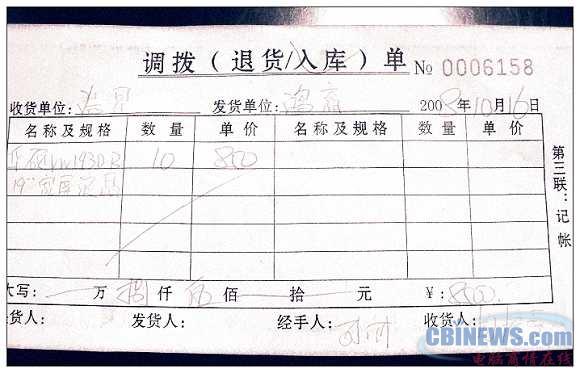 调拨（退货/入库）单 № 0006158
收货单位： 发货单位： 2008年10月16日
名称及规格 数量 单价 名称及规格 数量 单价
VW193DR 10 800
19"
第三联：记帐
大写： 万 捌 仟 佰 拾 元 ¥：8000
货人： 发货人： 经手人： 收货人：
CBINEWS.com
电脑商情在线